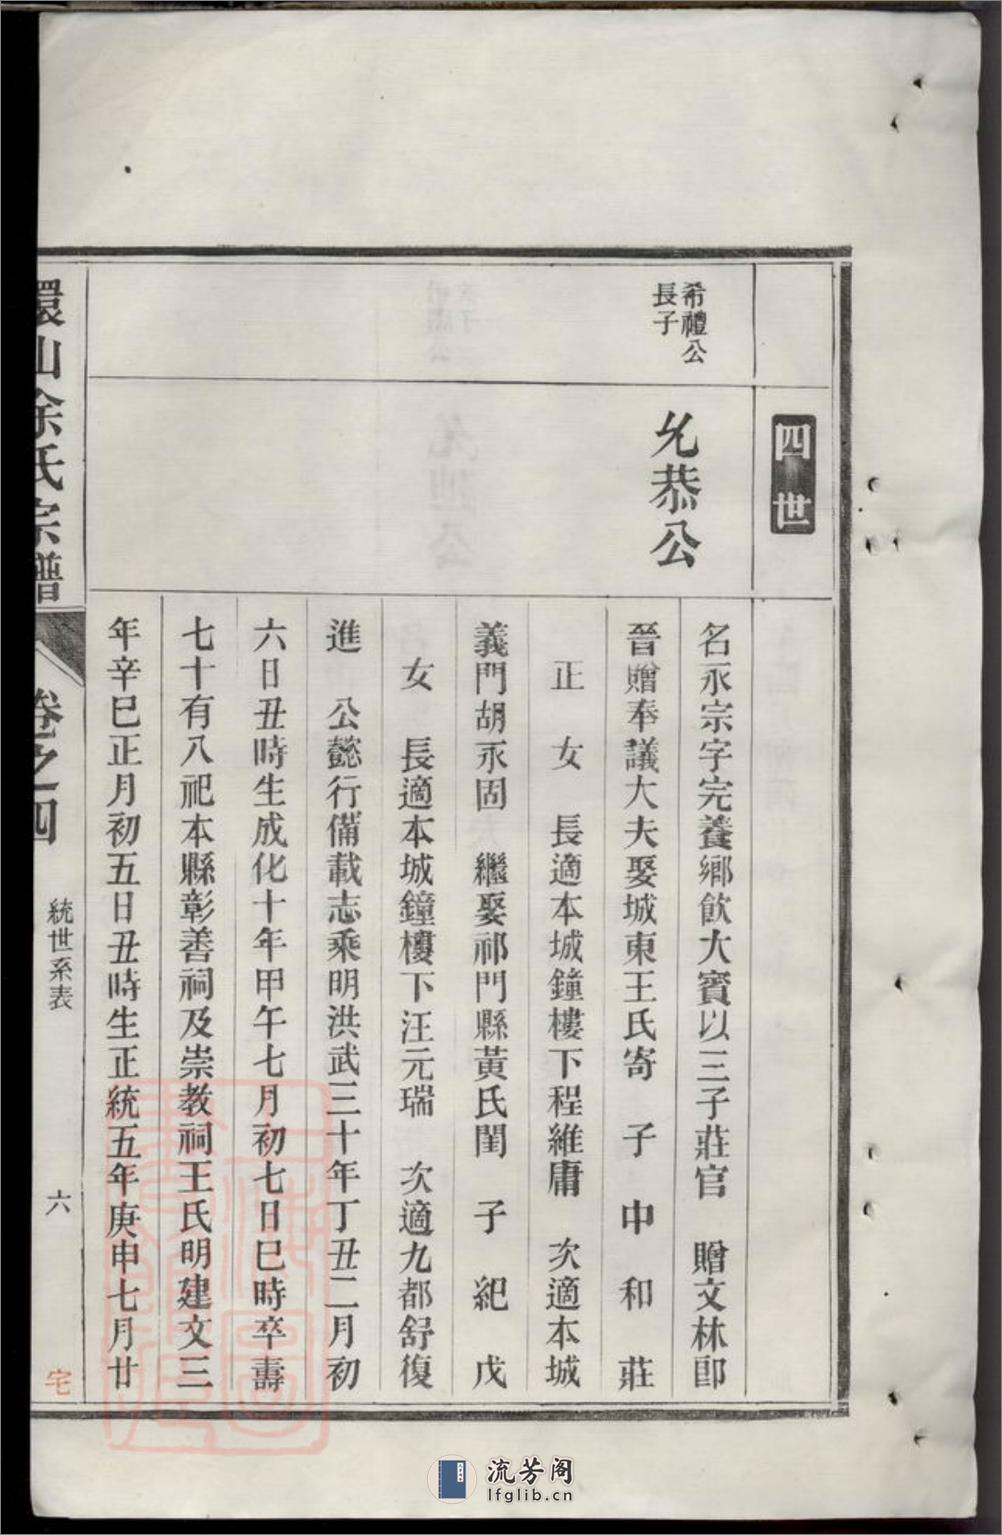 四世
希禮公
長子
允恭公
名永宗字完養鄉飲大賓以三子莊官 贈文林郎
晉贈奉議大夫娶城東王氏寄 子 中 和 莊
正 女 長適本城鐘樓下程維庸 次適本城
義門胡永固 繼娶祁門縣黃氏閏 子 紀 戊
女 長適本城鐘樓下汪元瑞 次適九都舒復
進 公懿行備載志乘明洪武三十年丁丑二月初
六日丑時生成化十年甲午七月初七日巳時卒壽
七十有八祀本縣彰善祠及崇教祠王氏明建文三
年辛巳正月初五日丑時生正統五年庚申七月廿
環山余氏宗譜
卷之四
統世系表
六
宅
流芳阁
lfglib.cn